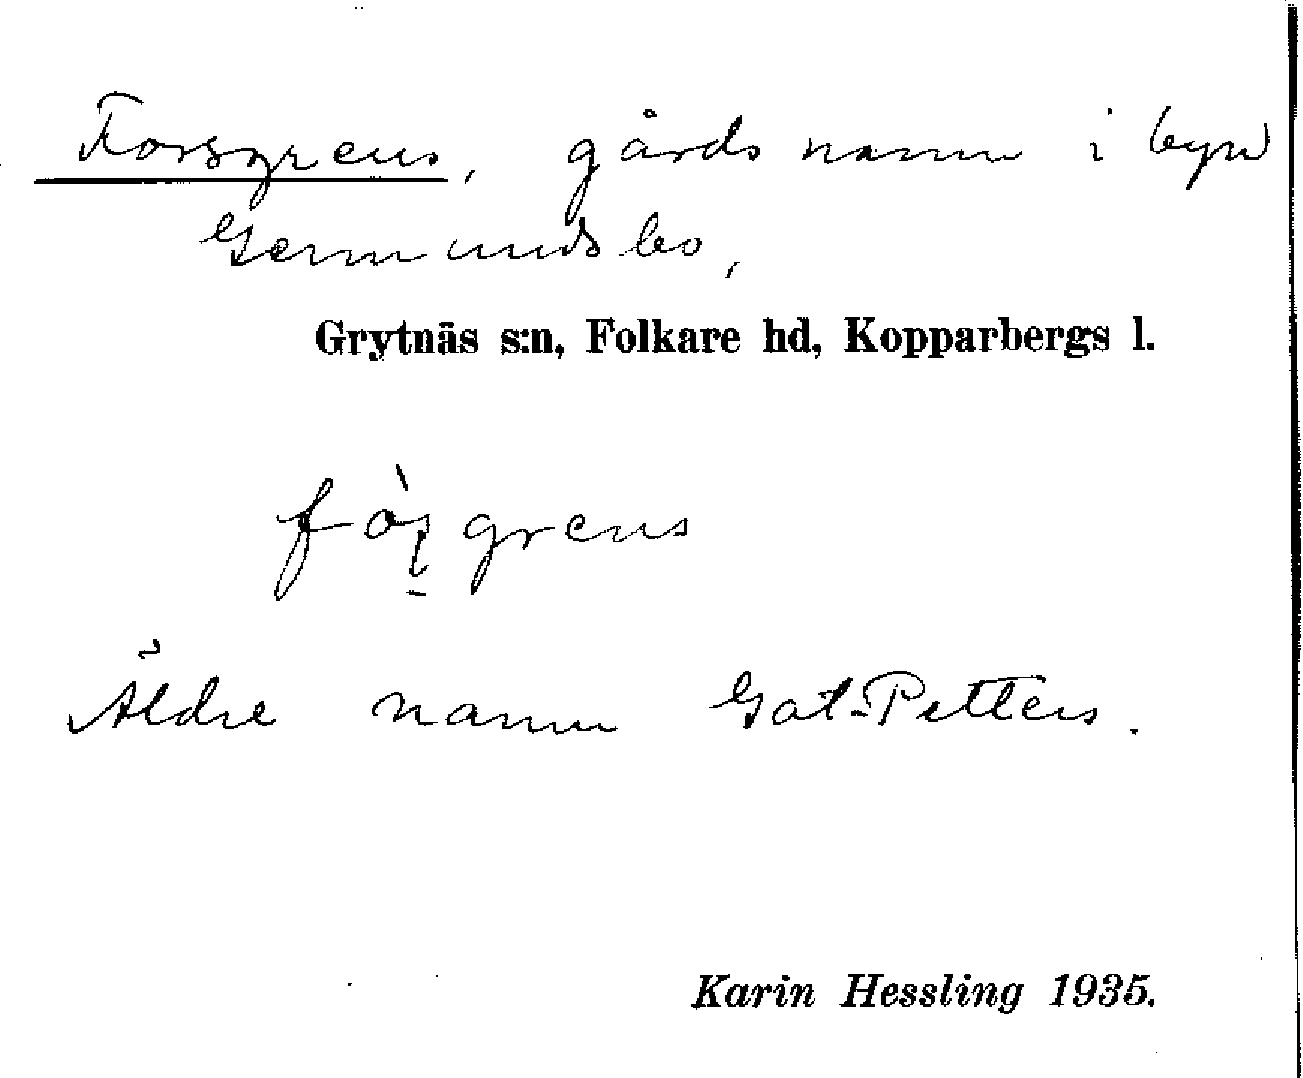 Forsgrens, gårdsnamn i byn
Germundsbo,
Grytnäs s:n, Folkare hd, Kopparbergs l.
fòʂgrens
Äldre namn Gat-Petters.
Karin Hessling 1935.